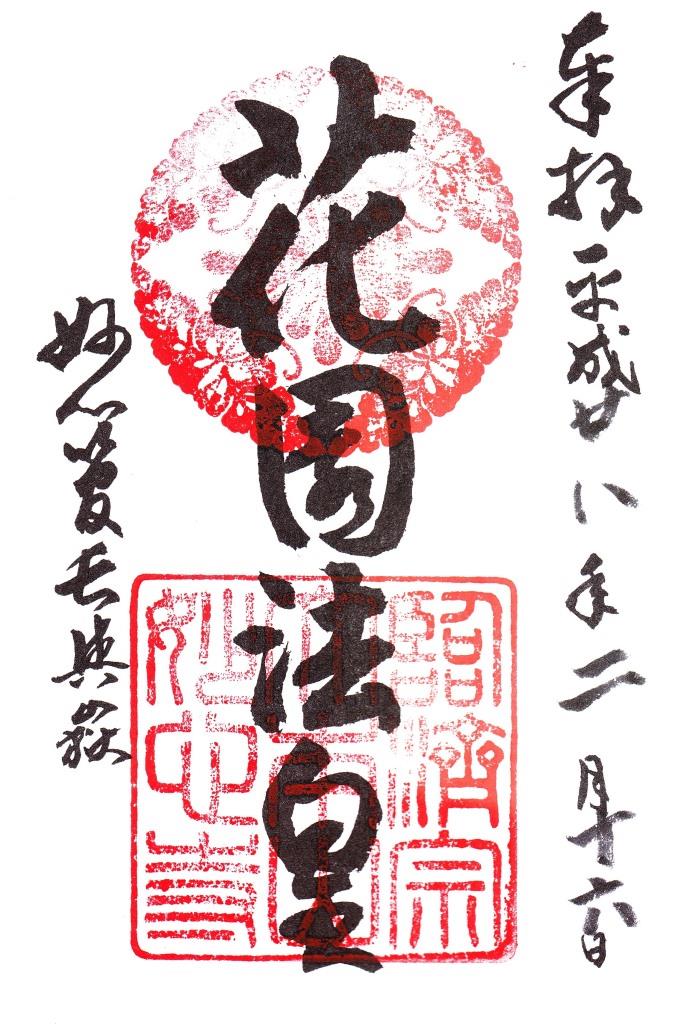 奉拝 平成廿八年二月十六日
花園法皇
妙心管長興嶽
臨濟宗
妙心寺